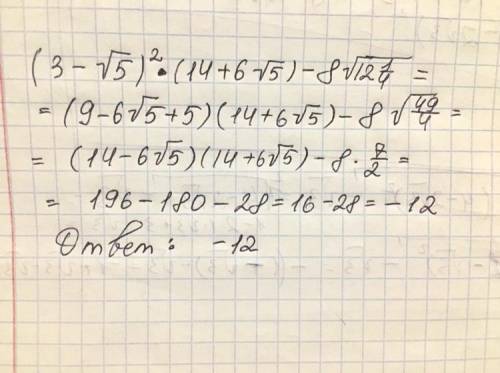 (3 - √5)² • (14 + 6√5) - 8√(12 1/4) =
= (9 - 6√5 + 5)(14 + 6√5) - 8√(49/4) =
= (14 - 6√5)(14 + 6√5) - 8 · 7/2 =
= 196 - 180 - 28 = 16 - 28 = -12
Ответ: -12